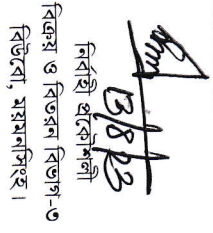 13/8/23
নির্বাহী প্রকৌশলী
বিক্রয় ও বিতরন বিভাগ-৩
বিউবো, ময়মনসিংহ।